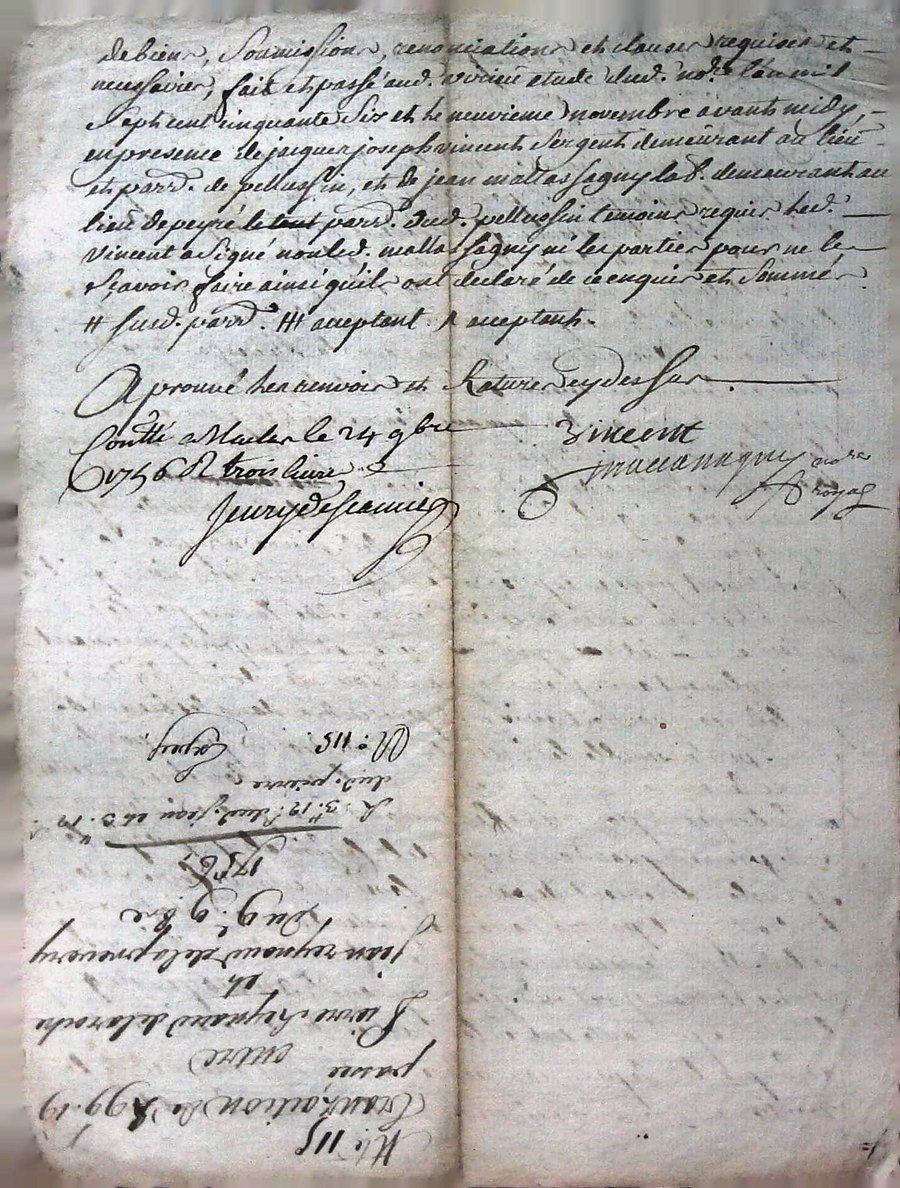 de biens, Soumissions, renonciations et clauses requises et
necessaires, fait et passé aud. virieu etude dud. nore. l'an mil
Sept cent cinquante Six et le neuvieme novembre avant midy,
en presence de jacques joseph vincent Sergent demeurant au lieu
et parr. de pellussin, et de jean mattassagny lab. demeurant au
lieu de peyré parr. dud. pellussin temoins requis led.
vincent a Signé non led. mattassagny ni les parties pour ne le
Sçavoir faire ainsi qu'ils ont declaré de ce enquis et Sommés
# susd. parr. acceptant acceptants.
Aprouvé les renvois et Ratures cy dessus
Contlé a le 24 9bre
1756 R trois livres
Vincent
nore
royal
No 115
Transaction de 99.19
passée
entre
Pierre Reynaud de la roche
et
jean reynaud de la
Du 9e. 9bre
1756
dud. jean et
dud. pierre
N.o 115.